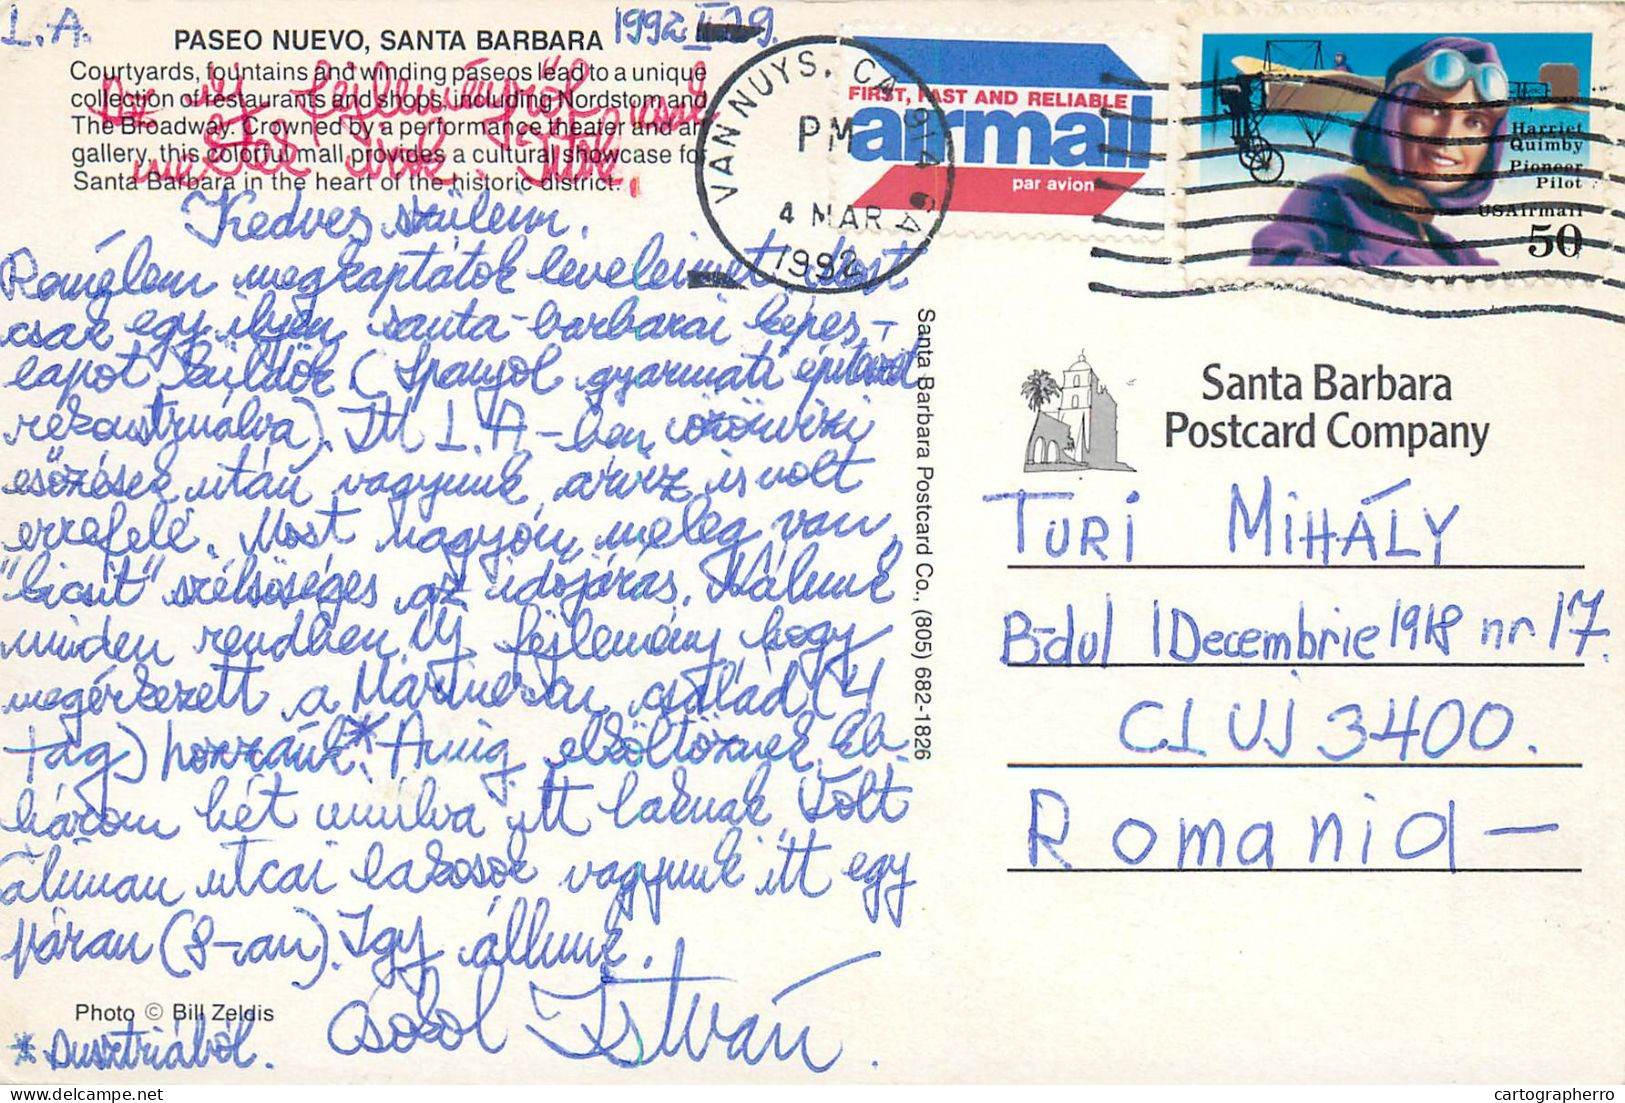 L.A.
1992 II 29.
PASEO NUEVO, SANTA BARBARA
Courtyards, fountains and winding paseos lead to a unique
collection of restaurants and shops, including Nordstom and
The Broadway. Crowned by a performance theater and art
gallery, this colorful mall provides a cultural showcase for
Santa Barbara in the heart of the historic district.
új fejleményről csak
most írok. Titok!
Kedves szüleim.
Remélem megkaptátok leveleimet. Most
csak egy ilyen santa-barbarai képes-
lapot küldök (Spanyol gyarmati építészet
rekonstruálva). Itt L.A-ben özönvízi
esőzések után vagyunk árvíz is volt
errefelé. Most nagyon meleg van,
"kicsit" szélsőséges az időjárás. Nálunk
minden rendben. Új fejlemény hogy
megérkezett a család (4
tag) hozzánk.* Amig elköltöznek
három hét múlva itt laknak. Volt
utcai lakosok vagyunk itt egy
páran (8-an). Igy állunk.
Csókol István.
Photo © Bill Zeldis
* Ausztriából.
VAN NUYS, CA 914 64
PM
4 MAR
1992
FIRST, FAST AND RELIABLE
airmail
par avion
Harriet
Quimby
Pioneer
Pilot
USAirmail
50
Santa Barbara Postcard Co., (805) 682-1826
Santa Barbara
Postcard Company
TURI MIHÁLY
B-dul 1 Decembrie 1918 nr 17.
CLUJ 3400.
Romania –
cartographerro